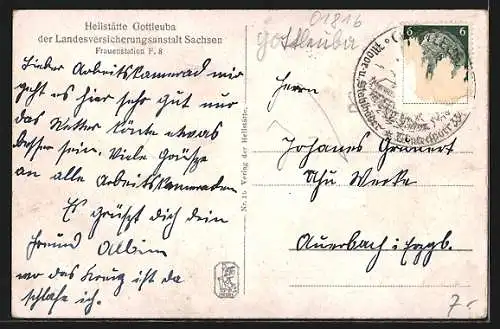 Heilstätte Gottleuba
der Landesversicherungsanstalt Sachsen
Frauenstation F. 8
Lieber Arbeitskamerad mir
geht es hier sehr gut nur
das Wetter könte etwas
besser sein. Viele Grüße
an alle Arbeitskameraden
Es grüßt dich dein
Freund Albin
wo das Kreuz ist da
schlafe ich.
Nr. 15 Verlag der Heilstätte.
01816
Gottleuba
6 6
Moor- u. Stahlbad
Herrn
Johanes Graunert
Uhu Werke
Auerbach i. Erzgb.
7.-